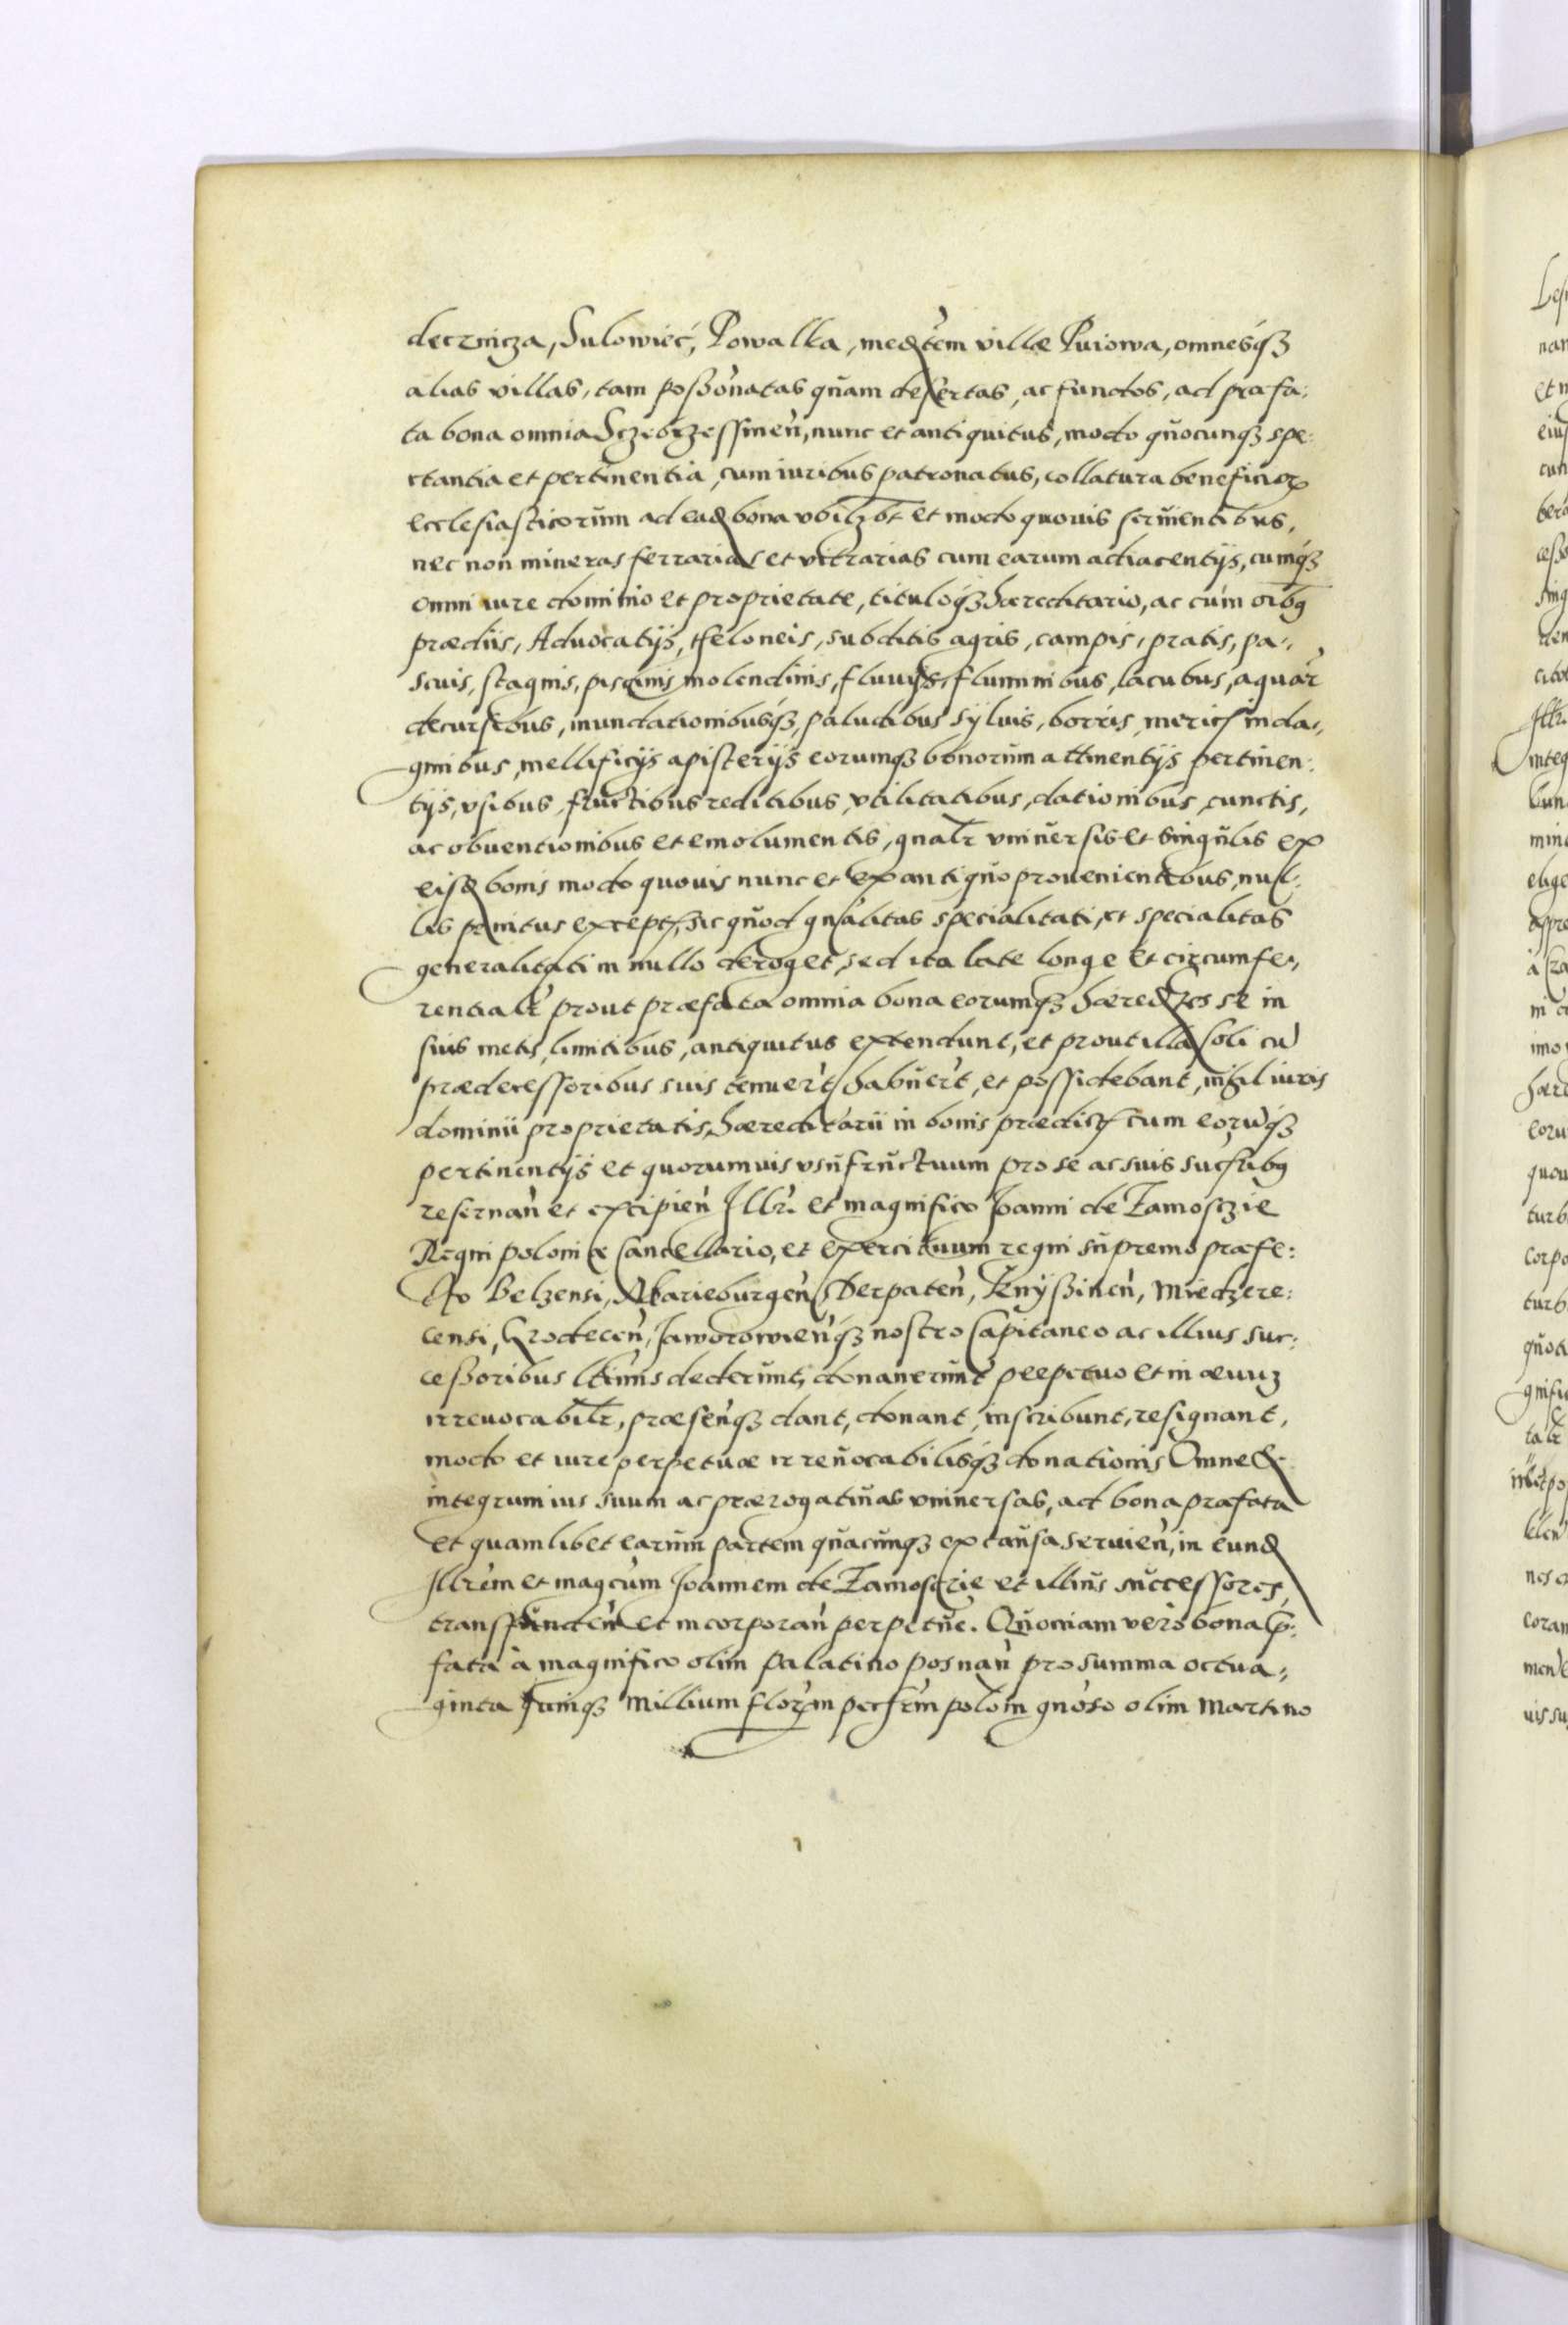 decznicza, Sulowiec, Rowalka, med tem villæ Kuiowa, omnesq₃
alias villas, tam poßonatas quam desertas, ac fundos, ad præfa:
ta bona omnia Sczebrzessinen, nunc et antiquitus, modo quocunq₃ spe:
ctantia et pertinentia, cum iuribus patronatus, collatura beneficior
ecclesiasticorum ad ead bona vbilzbt et modo quouis seruientibus,
nec non mineras ferrarias et vitrarias cum earum adiacentijs, cumq₃
omni iure dominio et proprietate, tituloq₃ hæreditario, ac cum oibg
prædiis, Aduocatijs, theloneis, subditis agris, campis, pratis, pa:
scuis, stagnis, piscinis molendinis, fluuijs, fluminibus, lacubus, aquar
decursibus, inundationibusq₃, paludibus syluis, borris, mericis inda:
ginibus, mellificijs apisterijs eorumq₃ bonorum attinentijs pertinen:
tijs, vsibus, fructibus reditibus, vtilitatibus, dationibus, cunctis,
ac obuentionibus et emolumentis, gnalr vniuersis et singulis ex
eisd bonis modo quouis nunc et ex antiquo prouenientibus, nul:
lis penitus except, sic quod gnalitas specialitati, et specialitas
generalitati in nullo deroget, sed ita late longe et circumfe:
rentialr prout præfata omnia bona eorumq₃ hæred se in
suis metis, limitibus, antiquitus extendunt, et prout illa soli cu
prædecessoribus suis tenuert, habuert, et possidebant, nihil iuris
dominii proprietatis, hæreditarii in bonis prædict cum eoruq₃
pertinentijs et quorumuis vsufructuum pro se ac suis sucſribg
reseruan et excipien Illri et magnifico Joanni de Zamosczie
Regni poloniæ Cancellario, et exercituum regni supremo præfe:
cto Belzensi, Marieburgen, Derpaten, Knÿßinen, Miedzere:
censi, Grodecen, Jaworowienq₃ nostro Capitaneo ac illius suc:
ceßoribus ltimis dederunt, donauerunt perpetuo et in æuuz
irreuocabilr, præsenq₃ dant, donant, inscribunt, resignant,
modo et iure perpetuæ irreuocabilisq₃ donationis Omne
integrum ius suum ac prærogatiuas vniuersas, ad bona præfata
et quamlibet earum partem quacunq₃ ex causa seruien, in eund
Illrem et magcum Joannem de Zamosczie et illius successores
transfunden et incorporan perpetue. Quoniam vero bona p:
fata a magnifico olim palatino posnan pro summa octua:
ginta quinq₃ millium florm pecſrm polom gnoso olim Martino